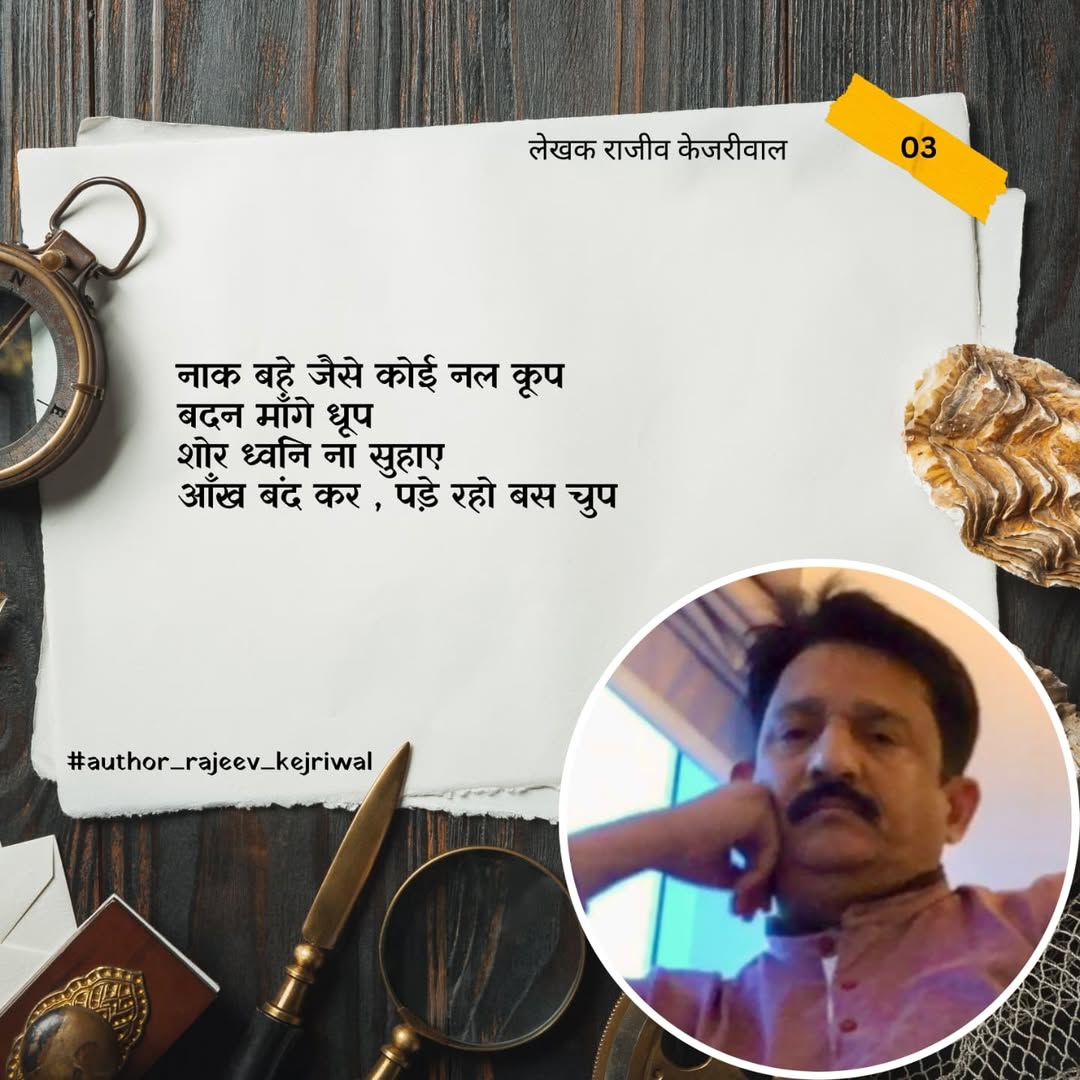 लेखक राजीव केजरीवाल
03
नाक बहे जैसे कोई नल कूप
बदन माँगे धूप
शोर ध्वनि ना सुहाए
आँख बंद कर , पड़े रहो बस चुप
#author_rajeev_kejriwal
N
E